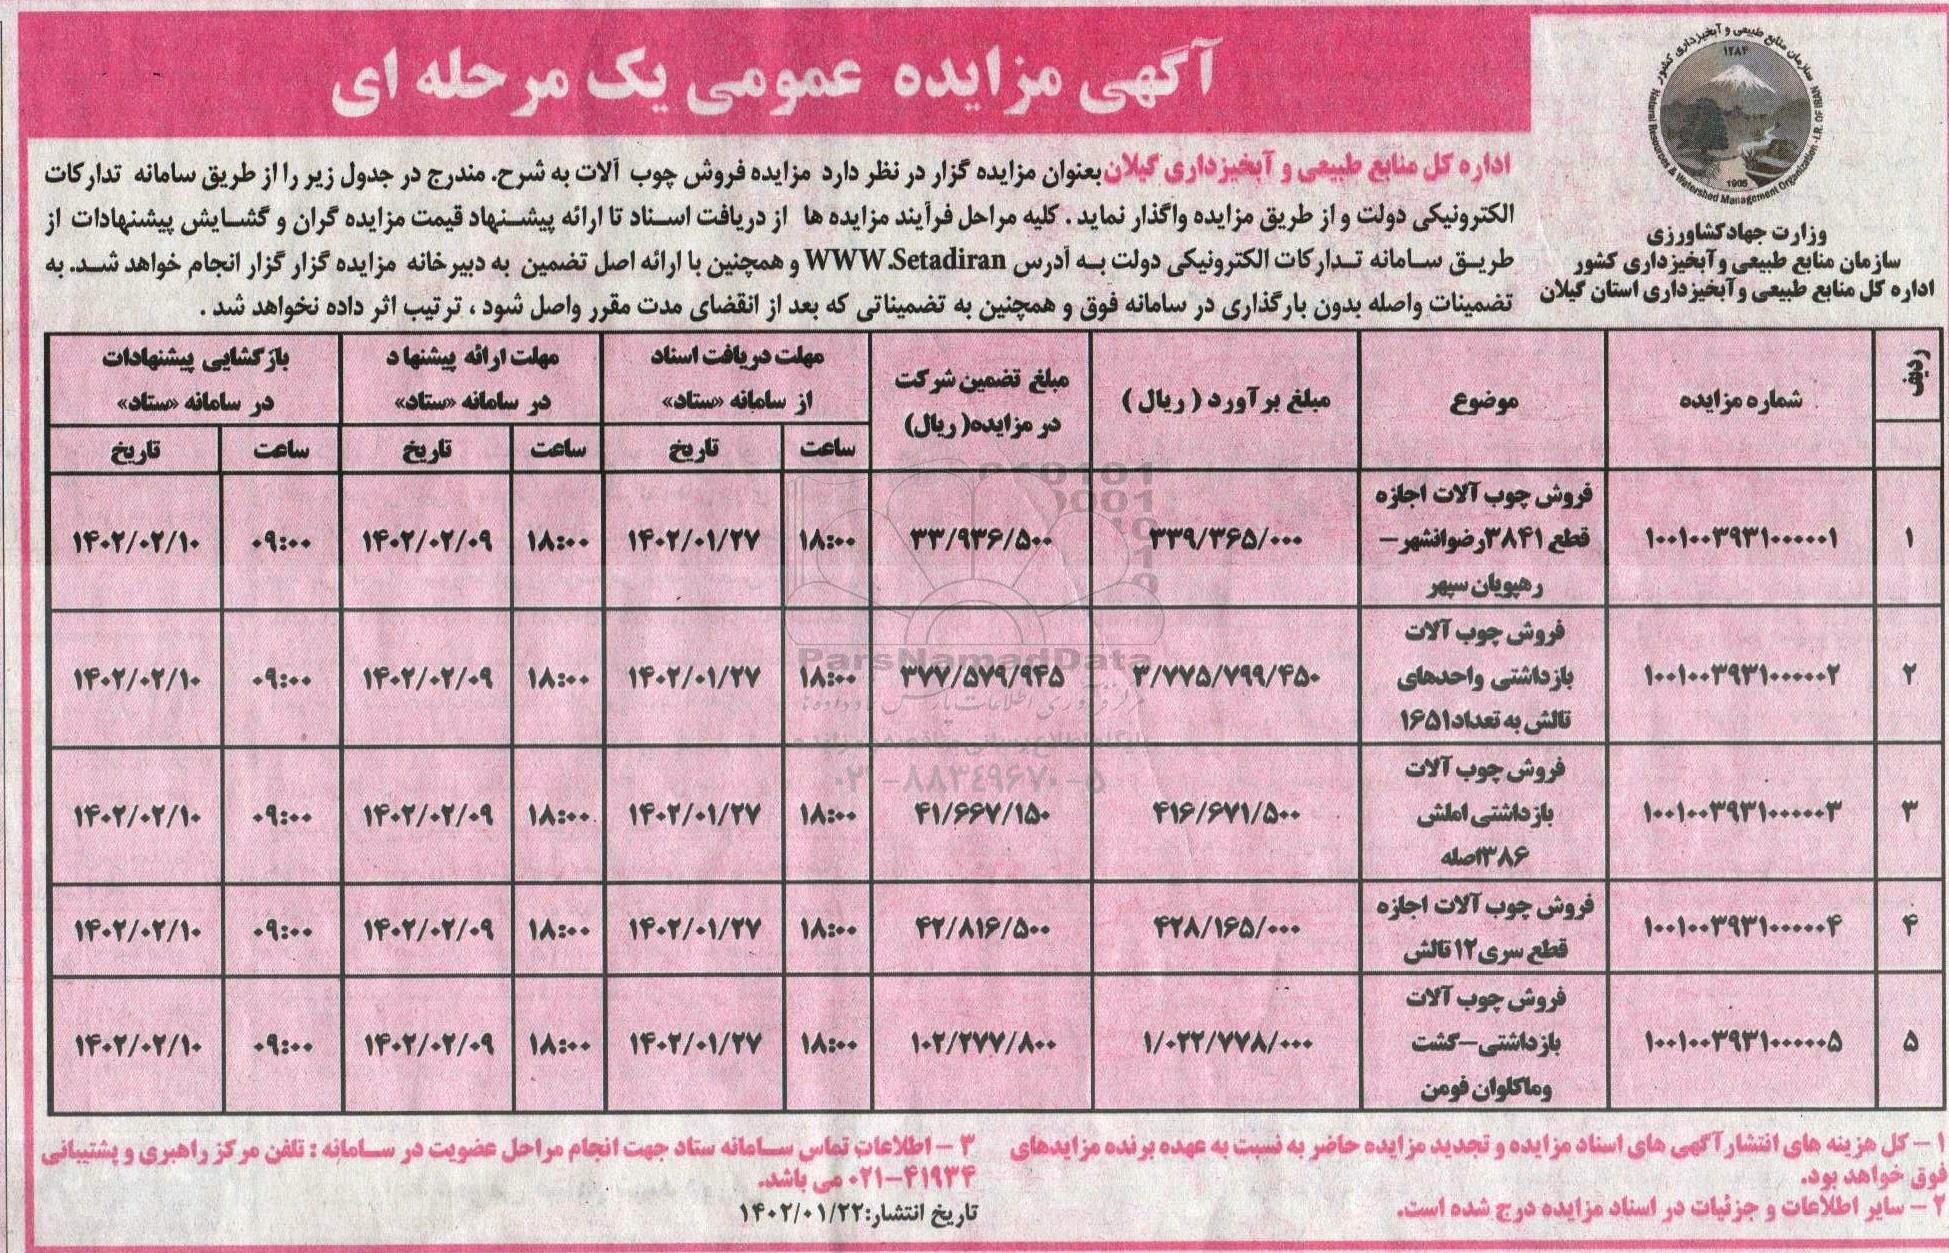 آگهی مزایده عمومی یک مرحله ای
سازمان منابع طبیعی و آبخیزداری کشور
۱۲۸۴
1905
Natural Resources & Watershed Management Organization I.R. OF IRAN
وزارت جهادکشاورزی
سازمان منابع طبیعی وآبخیزداری کشور
اداره کل منابع طبیعی وآبخیزداری استان گیلان
اداره کل منابع طبیعی و آبخیزداری گیلان بعنوان مزایده گزار در نظر دارد مزایده فروش چوب آلات به شرح، مندرج در جدول زیر را از طریق سامانه تدارکات
الکترونیکی دولت و از طریق مزایده واگذار نماید . کلیه مراحل فرآیند مزایده ها از دریافت اسناد تا ارائه پیشنهاد قیمت مزایده گران و گشایش پیشنهادات از
طریق سامانه تدارکات الکترونیکی دولت به آدرس WWW.Setadiran و همچنین با ارائه اصل تضمین به دبیرخانه مزایده گزار گزار انجام خواهد شد. به
تضمینات واصله بدون بارگذاری در سامانه فوق و همچنین به تضمیناتی که بعد از انقضای مدت مقرر واصل شود ، ترتیب اثر داده نخواهد شد .
ردیف
شماره مزایده
موضوع
مبلغ برآورد ( ریال )
مبلغ تضمین شرکت
در مزایده( ریال)
مهلت دریافت اسناد
از سامانه «ستاد»
مهلت ارائه پیشنهاد
در سامانه «ستاد»
بازگشایی پیشنهادات
در سامانه «ستاد»
ساعت تاریخ ساعت تاریخ ساعت تاریخ
فروش چوب آلات اجازه
۱ ۱۰۰۱۰۰۳۹۳۱۰۰۰۰۰۱ قطع ۳۸۴۱رضوانشهر– ۳۳۹/۳۶۵/۰۰۰ ۳۳/۹۳۶/۵۰۰ ۱۸:۰۰ ۱۴۰۲/۰۱/۲۷ ۱۸:۰۰ ۱۴۰۲/۰۲/۰۹ ۰۹:۰۰ ۱۴۰۲/۰۲/۱۰
رهپویان سپهر
فروش چوب آلات
۲ ۱۰۰۱۰۰۳۹۳۱۰۰۰۰۰۲ بازداشتی واحدهای ۳/۷۷۵/۷۹۹/۴۵۰ ۳۷۷/۵۷۹/۹۴۵ ۱۸:۰۰ ۱۴۰۲/۰۱/۲۷ ۱۸:۰۰ ۱۴۰۲/۰۲/۰۹ ۰۹:۰۰ ۱۴۰۲/۰۲/۱۰
تالش به تعداد۱۶۵۱
فروش چوب آلات
۳ ۱۰۰۱۰۰۳۹۳۱۰۰۰۰۰۳ بازداشتی املش ۴۱۶/۶۷۱/۵۰۰ ۴۱/۶۶۷/۱۵۰ ۱۸:۰۰ ۱۴۰۲/۰۱/۲۷ ۱۸:۰۰ ۱۴۰۲/۰۲/۰۹ ۰۹:۰۰ ۱۴۰۲/۰۲/۱۰
۳۸۶اصله
فروش چوب آلات اجازه
۴ ۱۰۰۱۰۰۳۹۳۱۰۰۰۰۰۴ قطع سری۱۲ تالش ۴۲۸/۱۶۵/۰۰۰ ۴۲/۸۱۶/۵۰۰ ۱۸:۰۰ ۱۴۰۲/۰۱/۲۷ ۱۸:۰۰ ۱۴۰۲/۰۲/۰۹ ۰۹:۰۰ ۱۴۰۲/۰۲/۱۰
فروش چوب آلات
۵ ۱۰۰۱۰۰۳۹۳۱۰۰۰۰۰۵ بازداشتی–گشت ۱/۰۲۲/۷۷۸/۰۰۰ ۱۰۲/۲۷۷/۸۰۰ ۱۸:۰۰ ۱۴۰۲/۰۱/۲۷ ۱۸:۰۰ ۱۴۰۲/۰۲/۰۹ ۰۹:۰۰ ۱۴۰۲/۰۲/۱۰
وماکلوان فومن
ParsNamadData
۰۲۱–۸۸۳۴۹۶۷۰–۵
۱ – کل هزینه های انتشار آگهی های اسناد مزایده و تجدید مزایده حاضر به نسبت به عهده برنده مزایدهای
فوق خواهد بود.
۲ – سایر اطلاعات و جزئیات در اسناد مزایده درج شده است.
۳ – اطلاعات تماس سامانه ستاد جهت انجام مراحل عضویت در سامانه : تلفن مرکز راهبری و پشتیبانی
۰۲۱–۴۱۹۳۴ می باشد.
تاریخ انتشار:۱۴۰۲/۰۱/۲۲